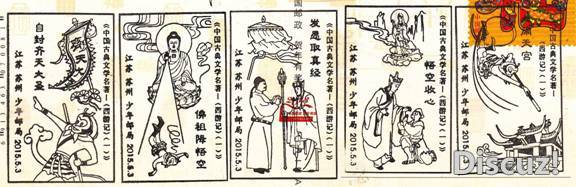 自封齐天大圣
《中国古典文学名著—《西游记》(一)》
江苏 苏州 少年邮局 2015.5.3
《中国古典文学名著—《西游记》(一)》
佛祖降悟空
江苏 苏州 少年邮局 2015.5.3
国邮政 贺年有奖
发愿取真经
《中国古典文学名著—《西游记》(一)》
江苏 苏州 少年邮局 2015.5.3
《中国古典文学名著—《西游记》(一)》
悟空收心
江苏 苏州 少年邮局 2015.5.3
闹天宫
《中国古典文学名著—《西游记》(一)》
江苏 苏州 少年邮局 2015.5.3
Discuz!